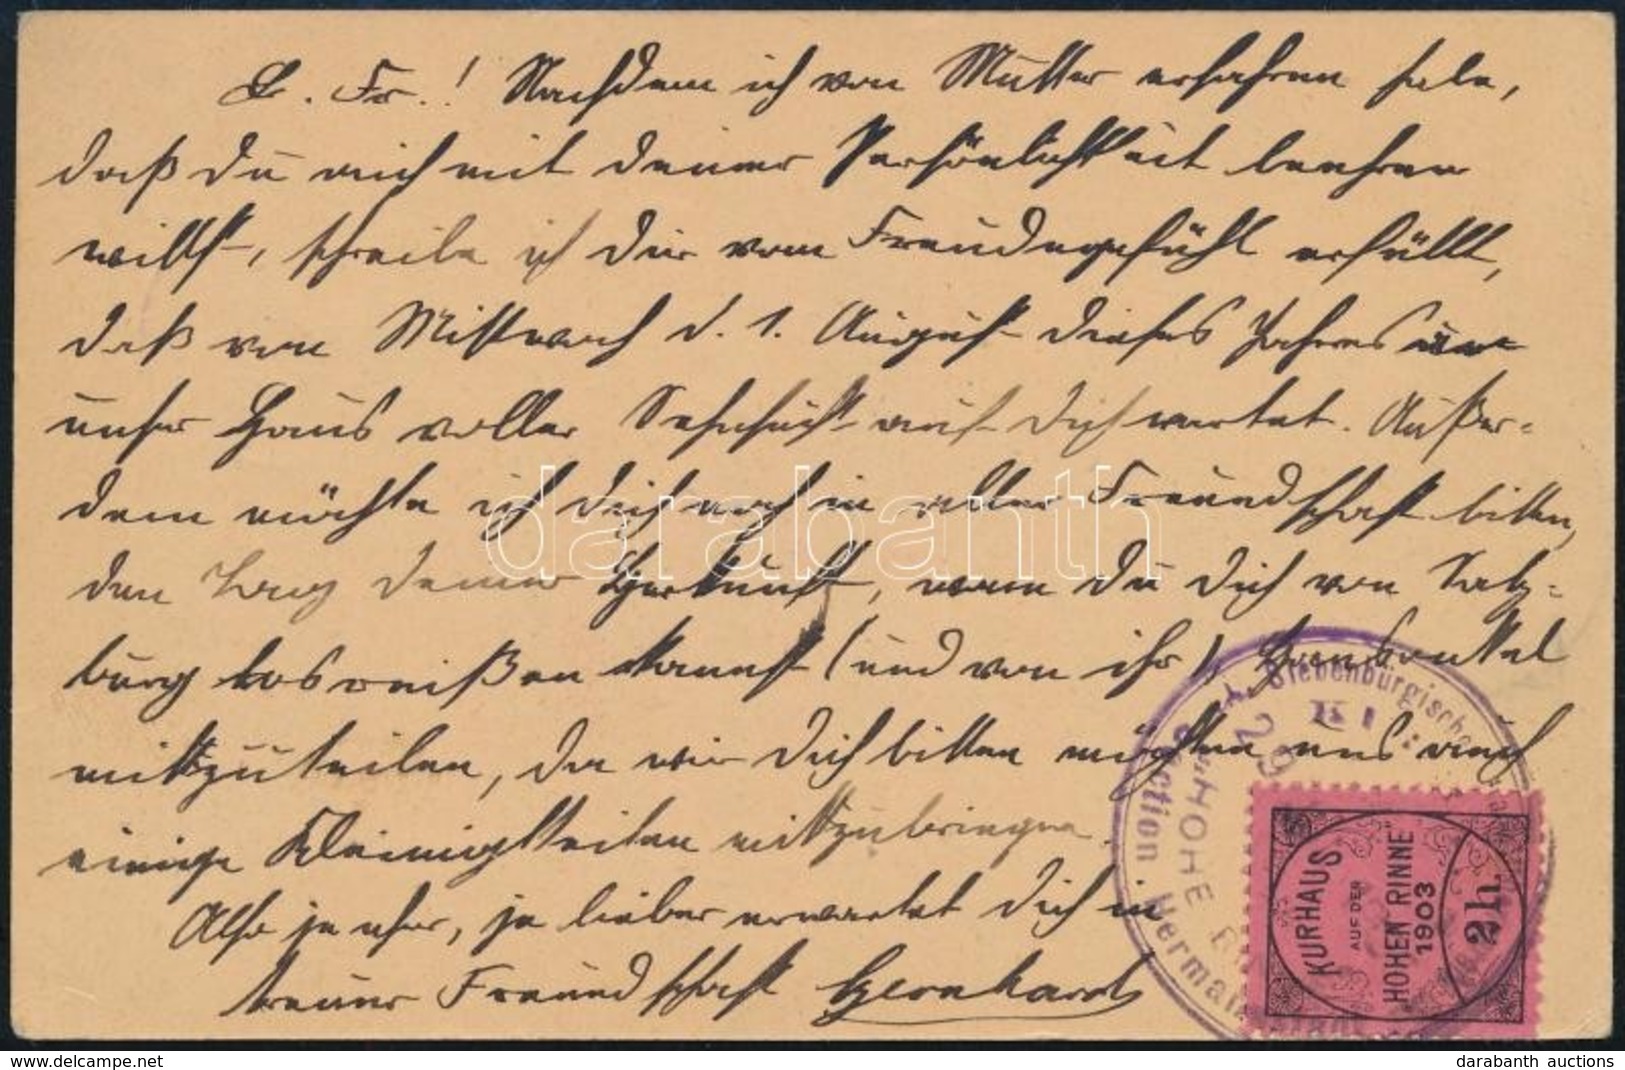 L. Fr.! Nachdem ich von Mutter erfahren habe,
daß du mich mit deiner Persönlichkeit beehren
willst, schreibe ich dir vom Freudegefühl erfüllt,
daß von Mittwoch d. 1. August dieses Jahres an
unser Haus voller Sehnsucht auf dich wartet. Außer-
dem möchte ich dich noch in aller Freundschaft bitten,
den Tag deiner Herkunft, wenn du dich von Salz-
burg losreißen kannst (und von ihr),
mitzuteilen, da wir dich bitten möchten uns auch
einige Kleinigkeiten mitzubringen.
Also je eher, je lieber erwartet dich in
treuer Freundschaft Gernhardt
darabanth
Siebenbürgische
Section Hermann
HOHE
29
KURHAUS
AUF DER
HOHEN RINNE
1903
2 h.
© www.darabanth.com
darabanth auctions